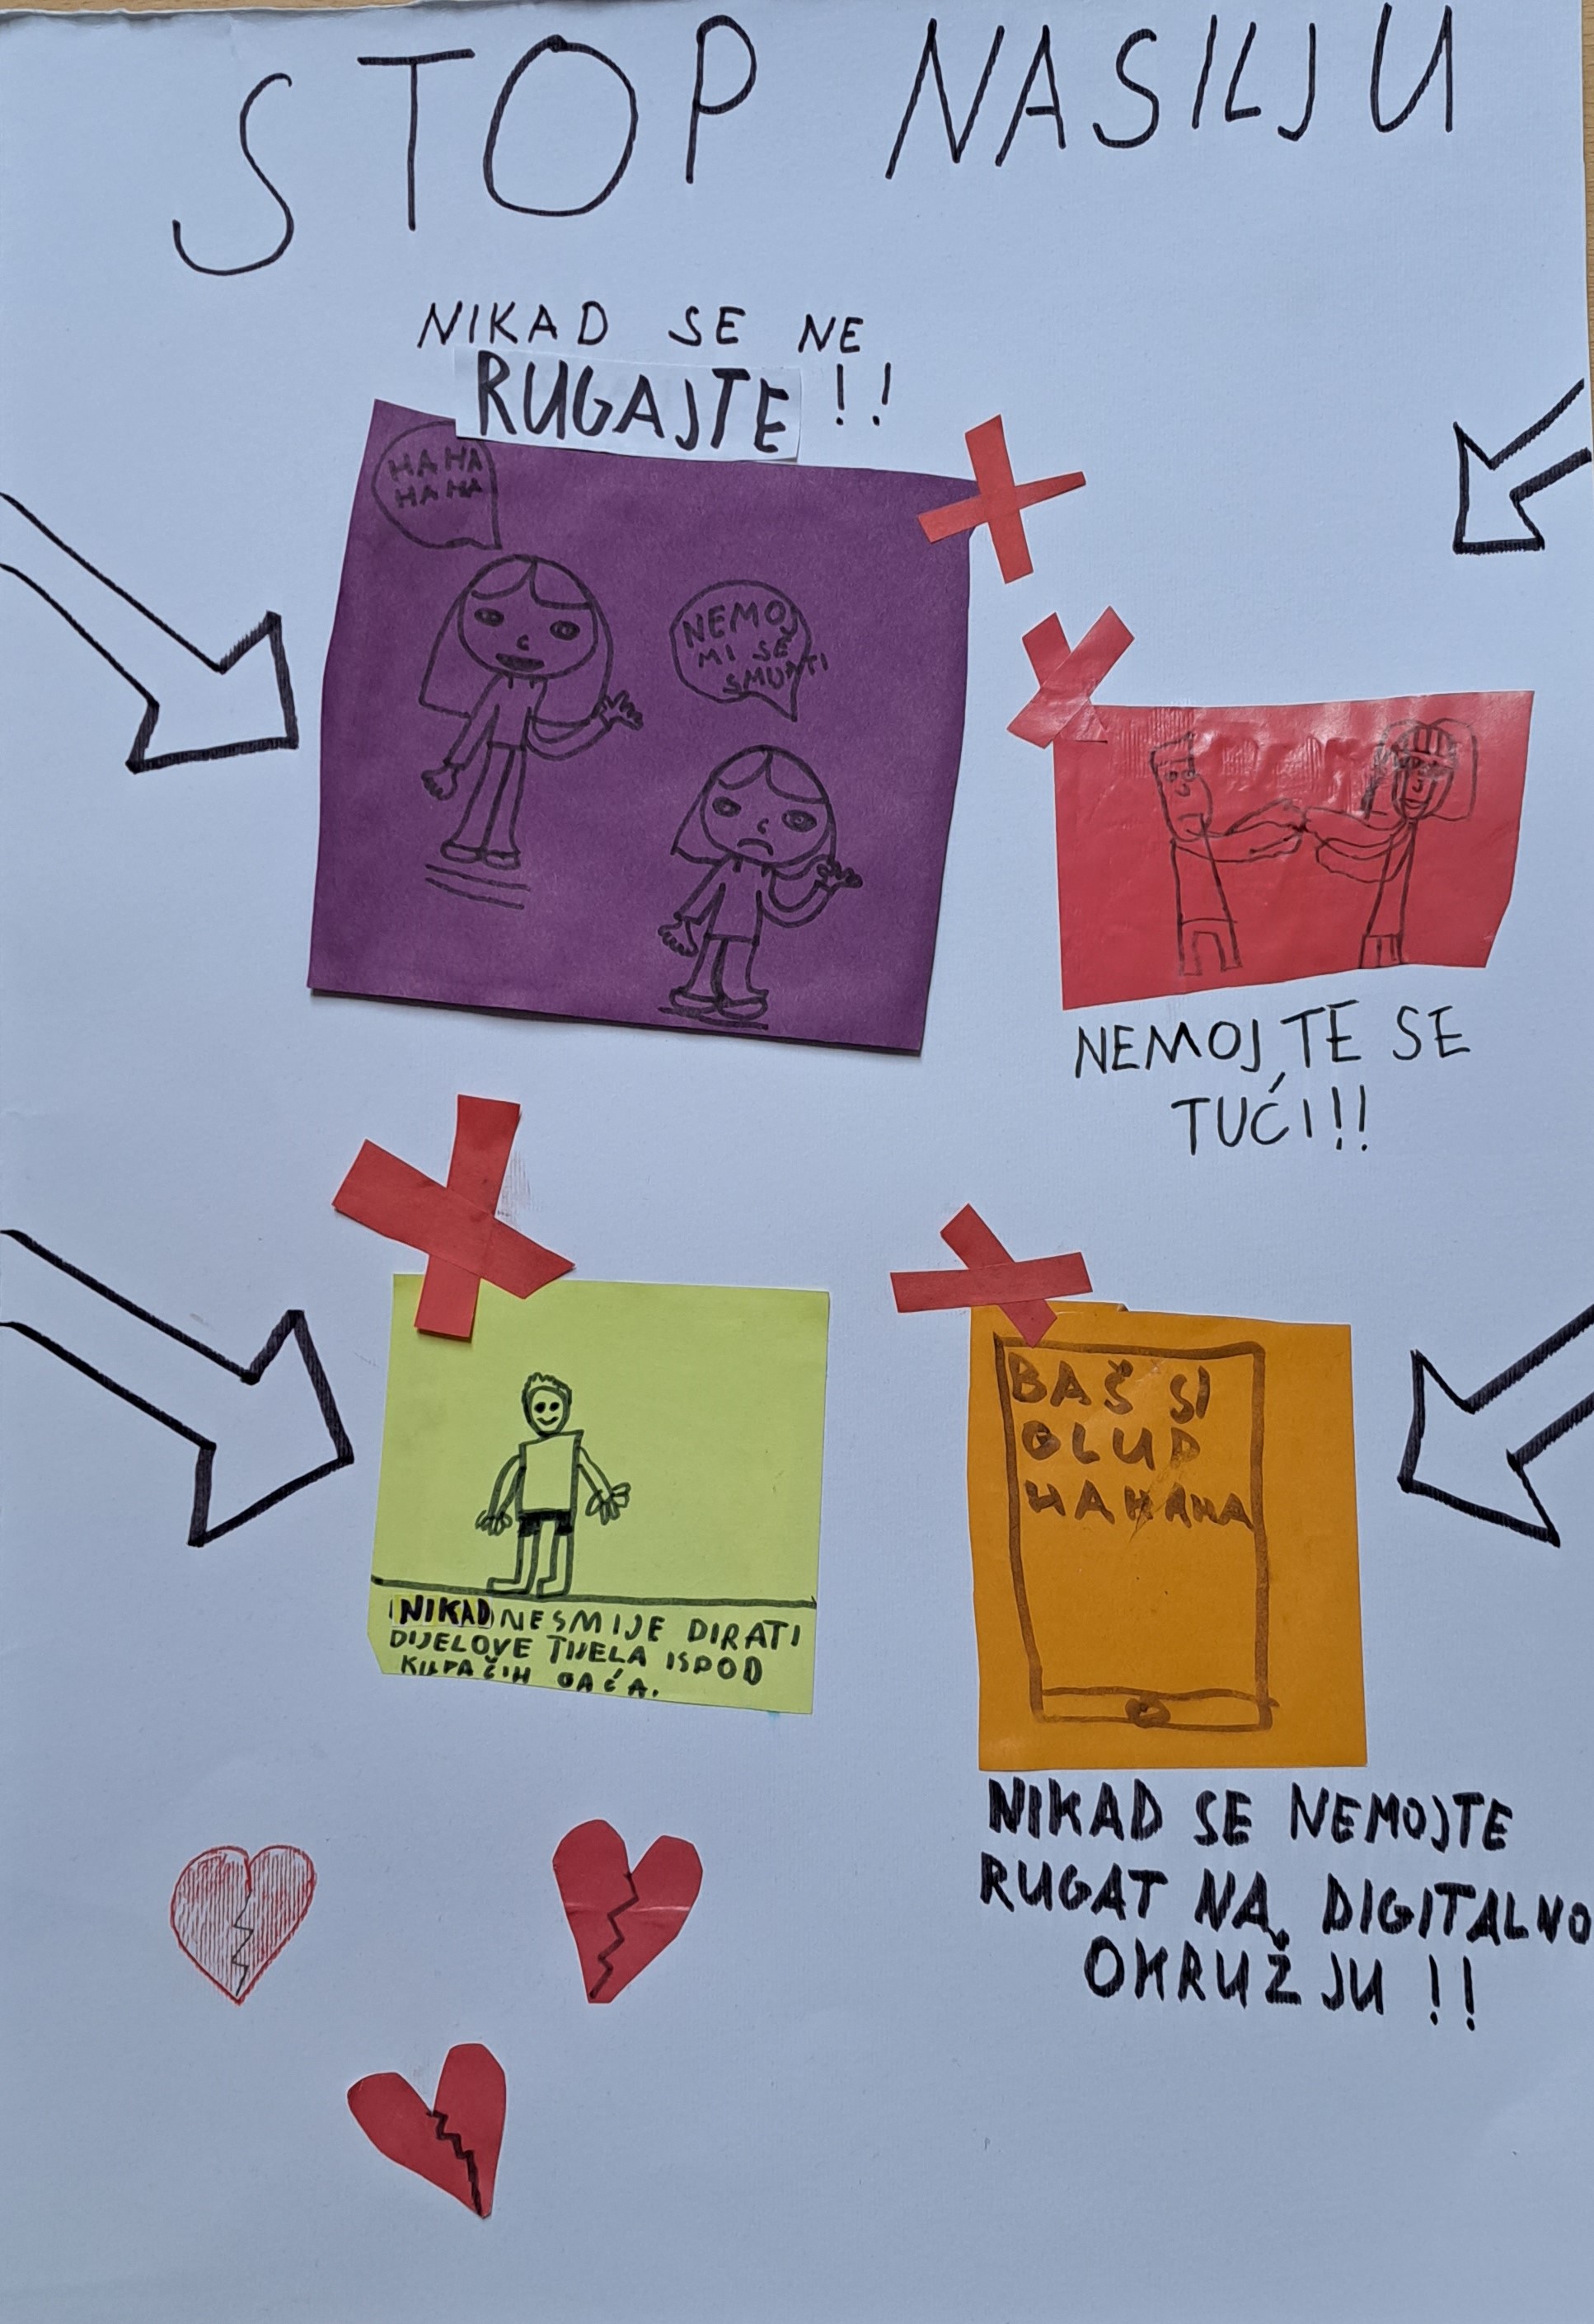 STOP NASILJU
NIKAD SE NE
RUGAJTE!!
HA HA
HA HA
NEMOJ
MI SE
NEMOJTE SE
TUĆI!!
NIKAD NE SMIJE DIRATI
DIJELOVE TIJELA ISPOD
KUPAČIH GAĆA.
BAŠ SI
GLUP
HAHAHA
NIKAD SE NEMOJTE
RUGAT NA DIGITALNO
OKRUŽJU !!